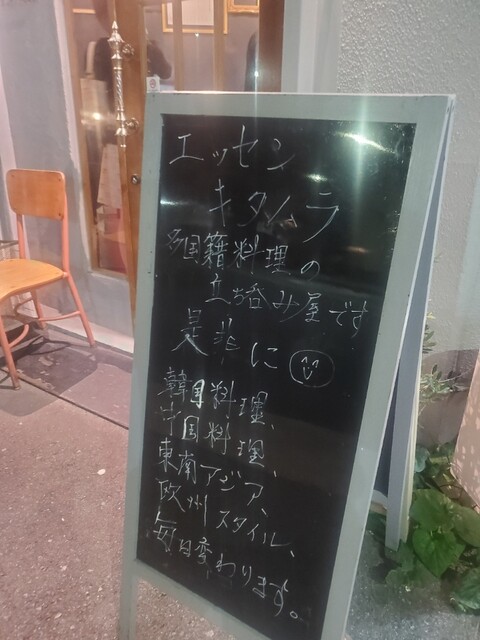 エッセン
キタムラ
多国籍料理の
立ち呑み屋です
是非に
韓国料理、
中国料理、
東南アジア、
欧州スタイル、
毎日変わります。